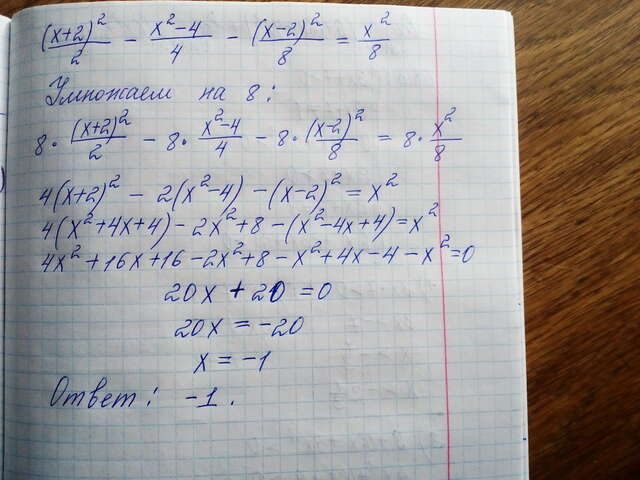 (x+2)²/2 − x²−4/4 − (x−2)²/8 = x²/8
Умножаем на 8:
8·(x+2)²/2 − 8·x²−4/4 − 8·(x−2)²/8 = 8·x²/8
4(x+2)² − 2(x²−4) − (x−2)² = x²
4(x²+4x+4) − 2x²+8 − (x²−4x+4) = x²
4x²+16x+16−2x²+8−x²+4x−4−x²=0
20x + 20 = 0
20x = −20
x = −1
Ответ: −1.